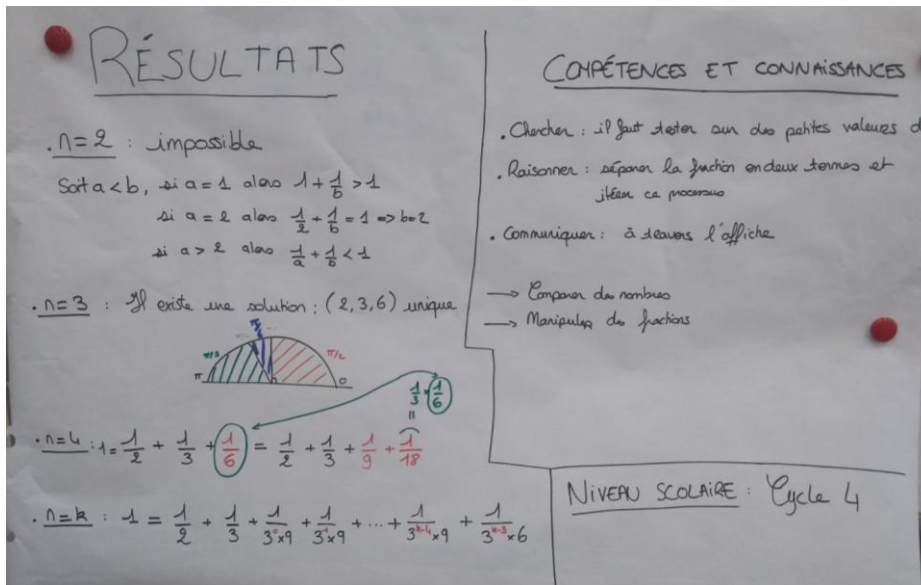 RÉSULTATS
. n=2 : impossible
Soit a < b, si a = 1 alors 1 + 1/b > 1
si a = 2 alors 1/2 + 1/b = 1 => b=2
si a > 2 alors 1/a + 1/b < 1
. n=3 : Il existe une solution : (2,3,6) unique
π/6
π/3
π/2
π
0
1/3 × 1/6
=
. n=4 : 1 = 1/2 + 1/3 + 1/6 = 1/2 + 1/3 + 1/9 + 1/18
. n=k : 1 = 1/2 + 1/3 + 1/(3^0×9) + 1/(3^1×9) + ... + 1/(3^(k-4)×9) + 1/(3^(k-3)×6)
COMPÉTENCES ET CONNAISSANCES
. Chercher : il faut tester sur des petites valeurs d
. Raisonner : séparer la fraction en deux termes et
itérer ce processus
. Communiquer : à travers l'affiche
→ Comparer des nombres
→ Manipuler des fractions
NIVEAU SCOLAIRE : Cycle 4